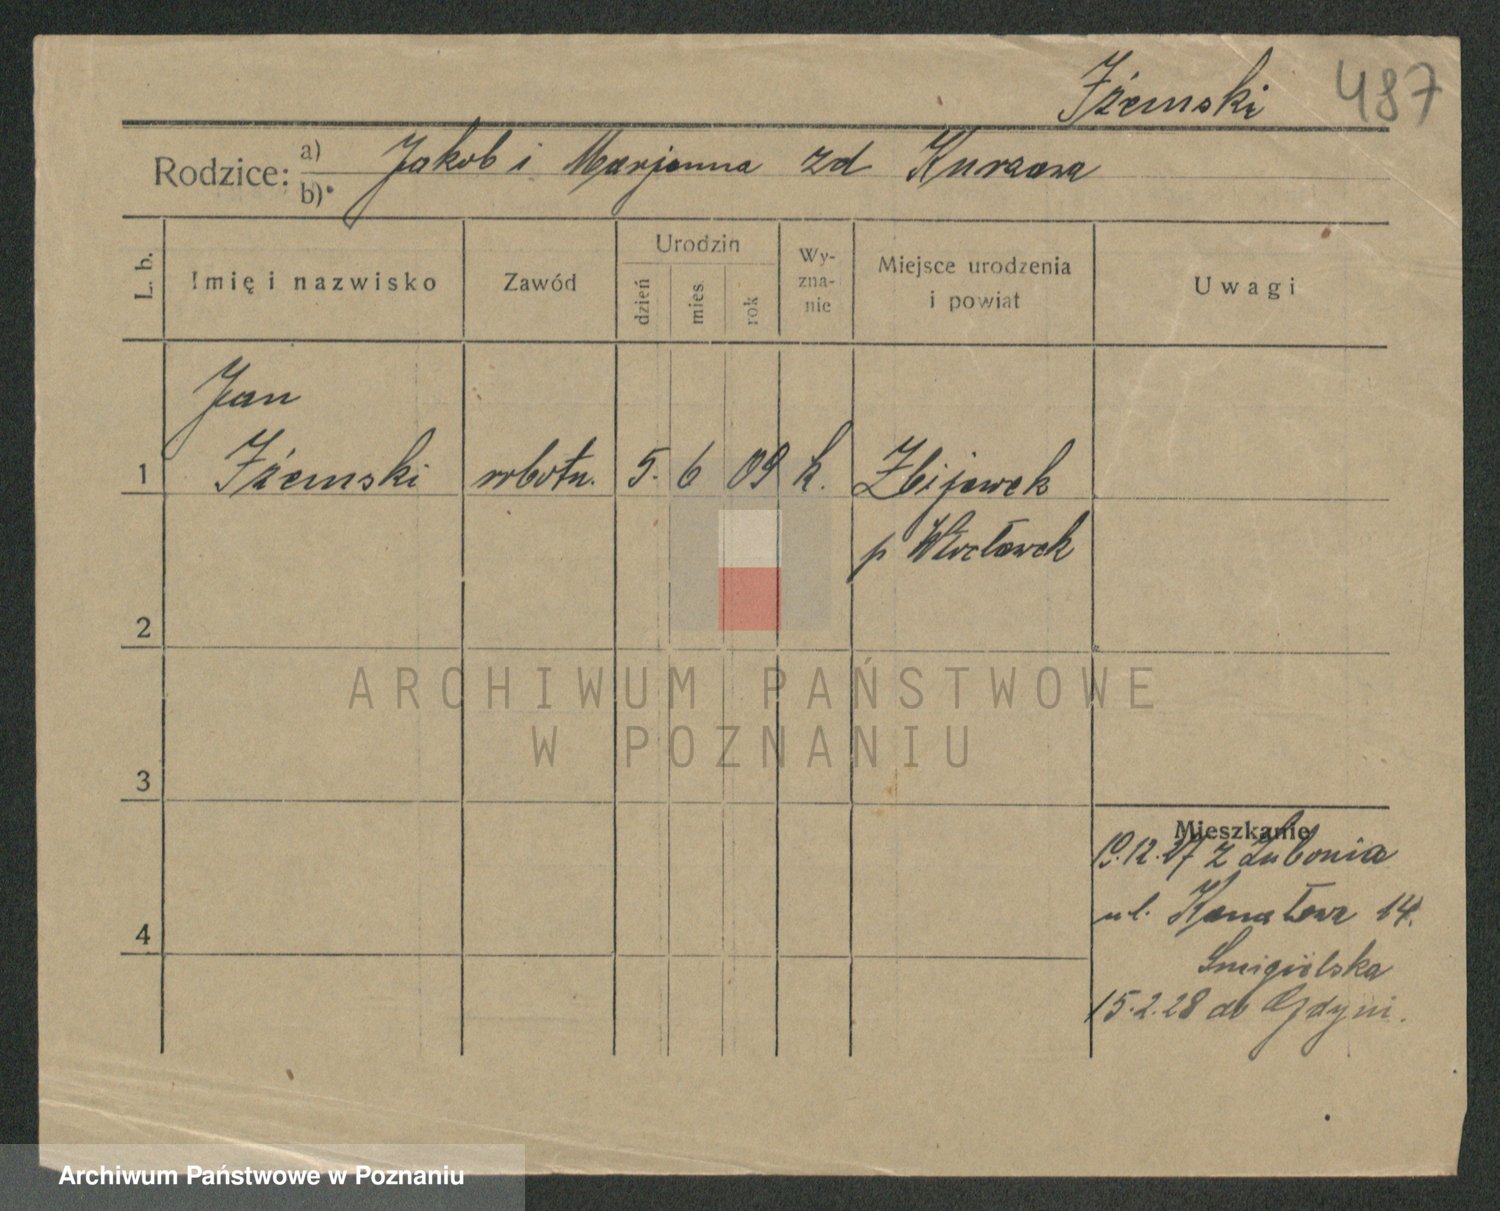 Iżemski 487
Rodzice: a) Jakob i Marjanna zd Kurzawa
b)
L. b. Imię i nazwisko Zawód Urodzin dzień mies. rok Wy-zna-nie Miejsce urodzenia i powiat Uwagi
Jan
1 Iżemski robotn. 5. 6 09 k. Zbijewek
p Włocławek
2
ARCHIWUM PAŃSTWOWE
W POZNANIU
3
Mieszkanie
19.12.27 z Lubonia
ul. Kanałowa 14.
4
Smigielska
15.2.28 do Gdyni.
Archiwum Państwowe w Poznaniu